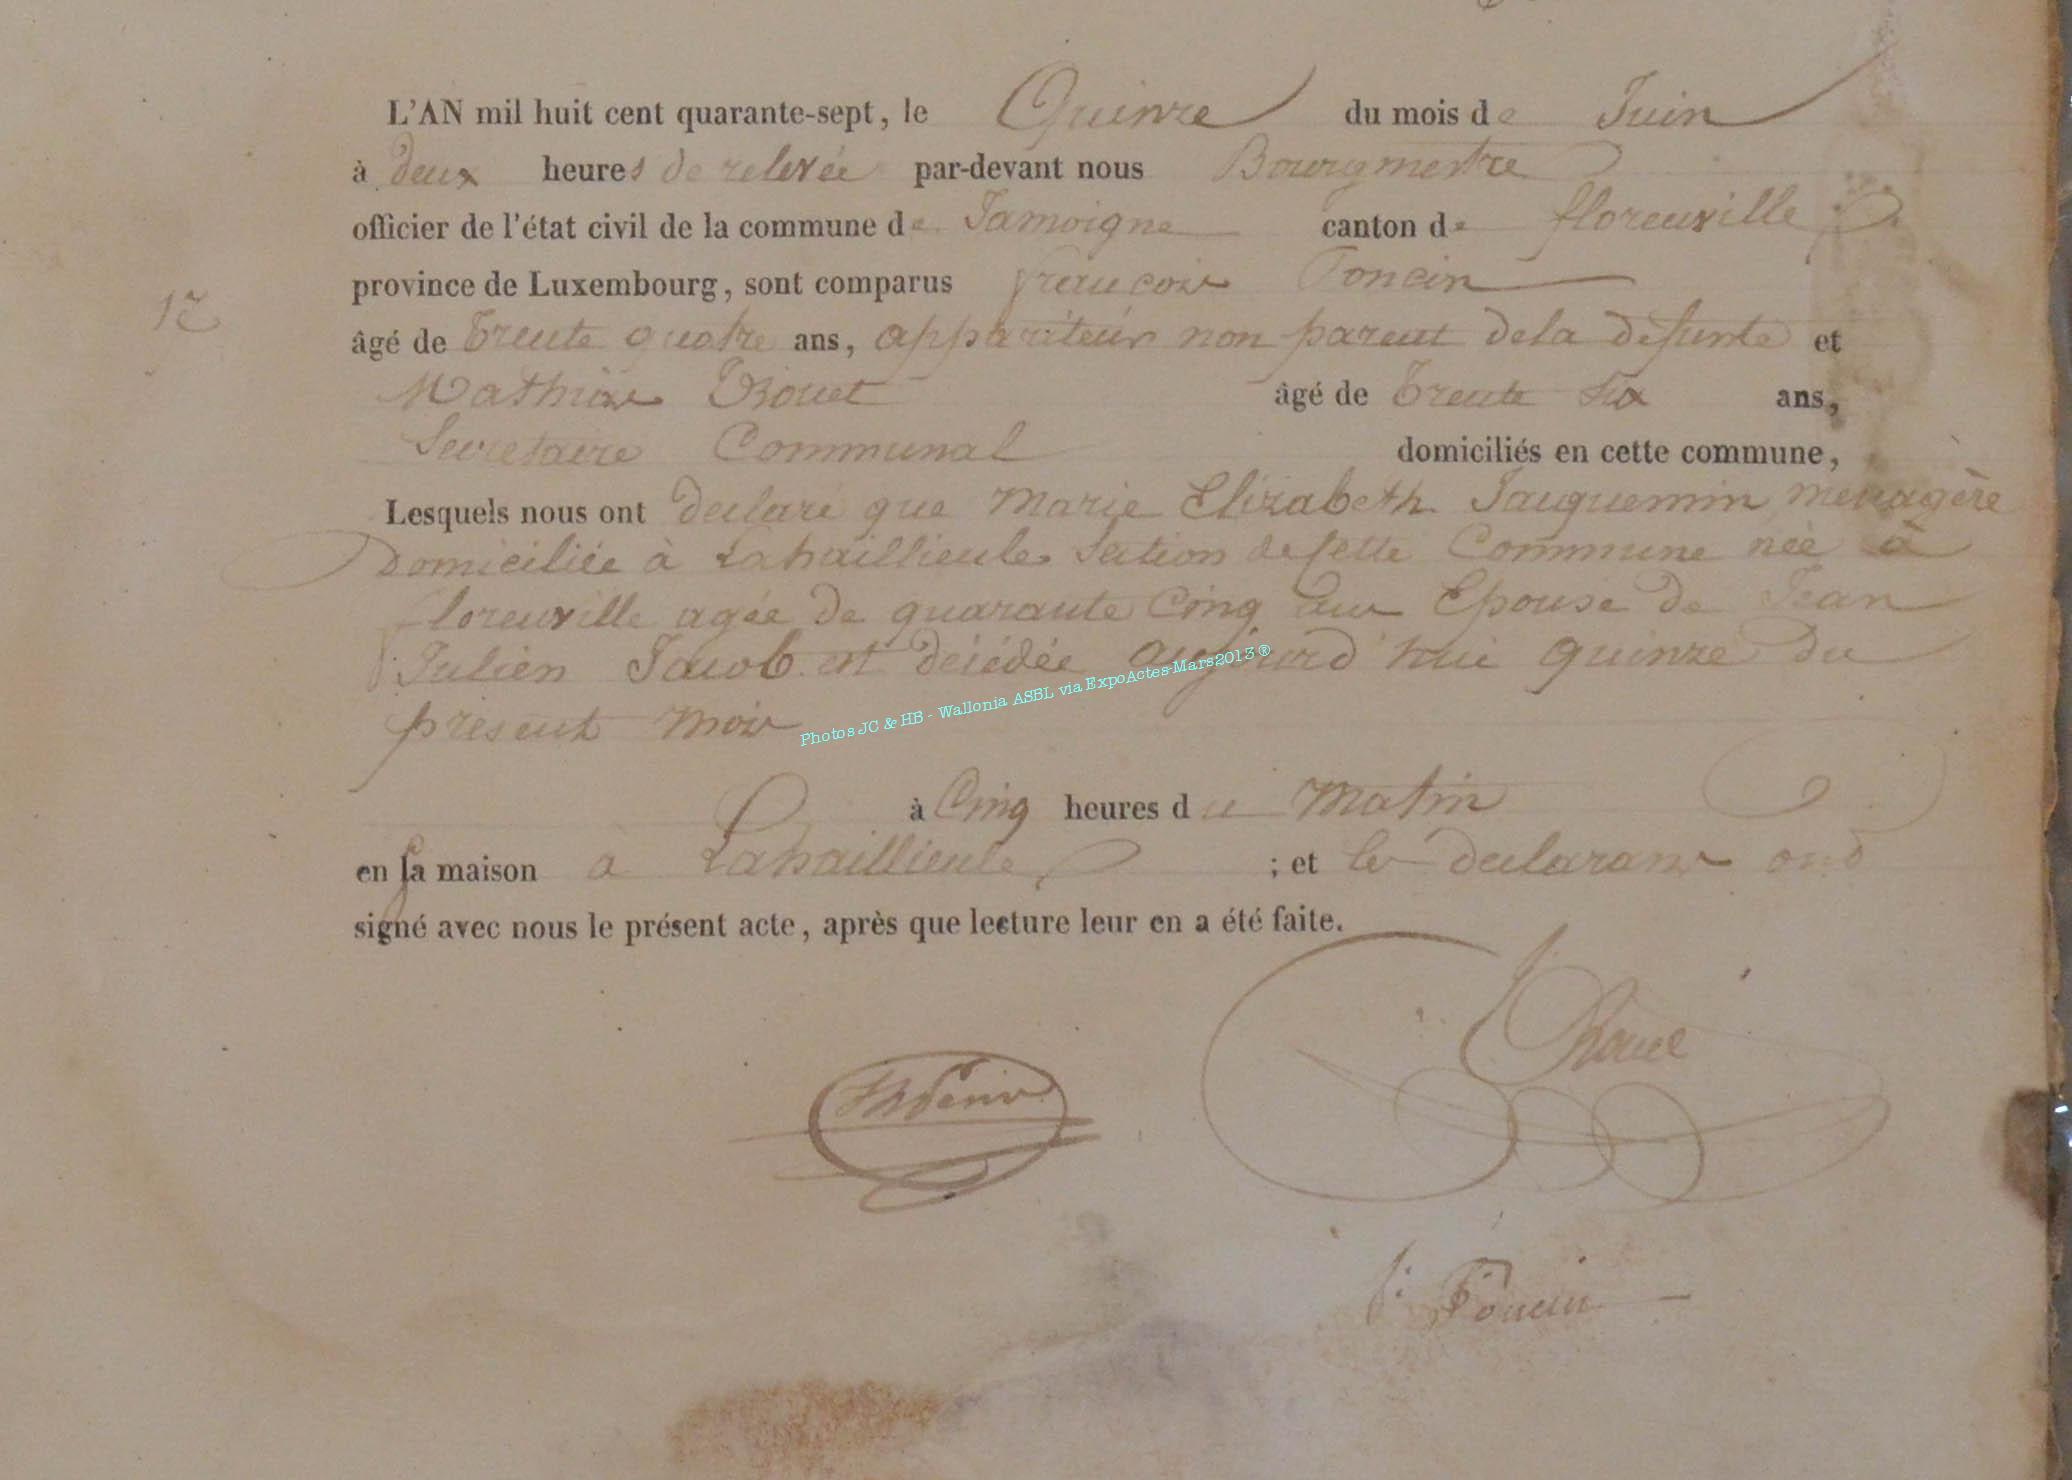 L'AN mil huit cent quarante-sept, le Quinze du mois de Juin
à deux heures de relevée par-devant nous Bourgmestre
officier de l'état civil de la commune de Jamoigne canton de florenville
province de Luxembourg, sont comparus françois Toncin
17
âgé de Trente quatre ans, appariteur non parent dela defunte et
Mathias Bouet âgé de Trente six ans,
Secretaire Communal domiciliés en cette commune,
Lesquels nous ont declaré que Marie Elizabeth Jauquemin menagère
Domiciliée à Lahaillieule Section de cette Commune née à
florenville agée de quarante Cinq ans Epouse de Jean
Julien Jacob est décédée aujourd'hui quinze du
présent mois
à Cinq heures du Matin
en sa maison à Lahaillieule ; et les declarans ond
signé avec nous le présent acte, après que lecture leur en a été faite.
f: Toncin
Photos JC & HB - Wallonia ASBL via ExpoActes-Mars2013®